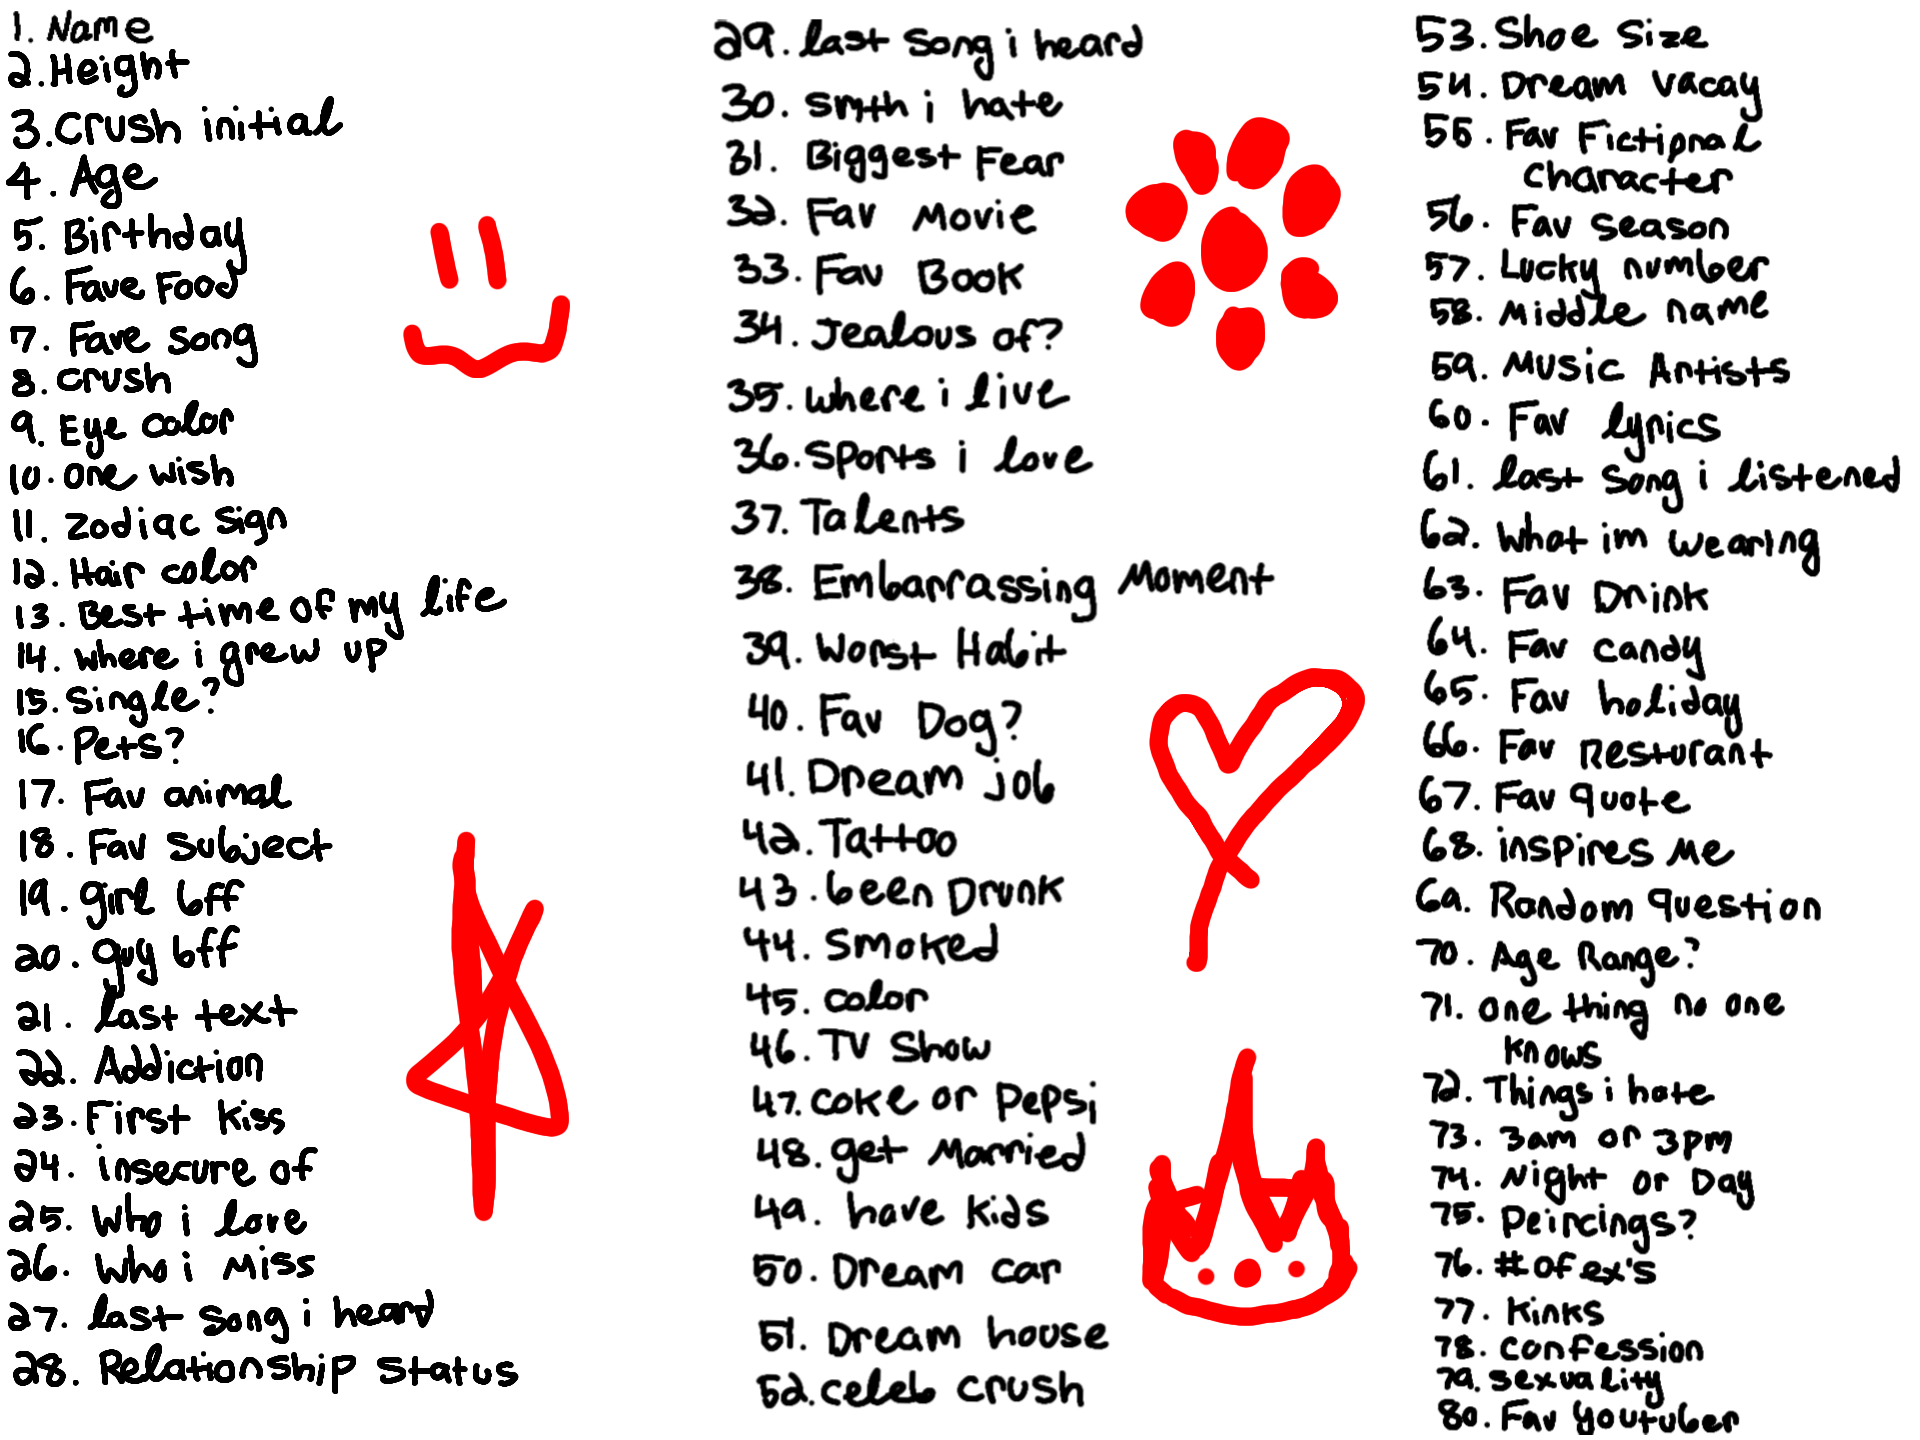 1. Name
2. Height
3. Crush initial
4. Age
5. Birthday
6. Fave Food
7. Fave song
8. crush
9. Eye color
10. one wish
11. zodiac sign
12. Hair color
13. Best time of my life
14. where i grew up
15. single?
16. Pets?
17. Fav animal
18. Fav subject
19. girl bff
20. guy bff
21. last text
22. Addiction
23. First kiss
24. insecure of
25. Who i love
26. Who i Miss
27. last song i heard
28. Relationship status
29. last song i heard
30. smth i hate
31. Biggest Fear
32. Fav Movie
33. Fav Book
34. Jealous of?
35. where i live
36. Sports i love
37. Talents
38. Embarrassing Moment
39. Worst Habit
40. Fav Dog?
41. Dream job
42. Tattoo
43. been Drunk
44. Smoked
45. color
46. TV Show
47. coke or Pepsi
48. get Married
49. have kids
50. Dream car
51. Dream house
52. celeb crush
53. Shoe Size
54. Dream vacay
55. Fav Fictional
character
56. Fav season
57. Lucky number
58. Middle name
59. Music Artists
60. Fav lyrics
61. last song i listened
62. What im wearing
63. Fav Drink
64. Fav candy
65. Fav holiday
66. Fav Resturant
67. Fav quote
68. inspires Me
69. Random question
70. Age Range?
71. one thing no one
knows
72. Things i hate
73. 3am or 3pm
74. Night or Day
75. Peircings?
76. # of ex's
77. Kinks
78. confession
79. sexuality
80. Fav Youtuber